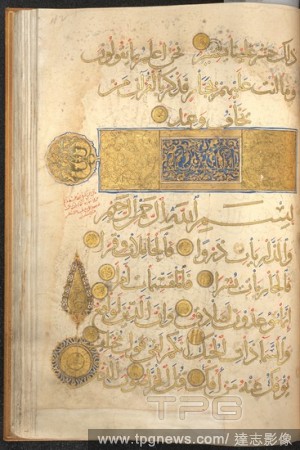 ذلك حشر علينا يسير نحن اعلم بما يقولون
وما انت عليهم بجبار فذكر بالقران من
يخاف وعيد
بسم الله الرحمن الرحيم
والذاريات ذروا فالحاملات وقرا
فالجاريات يسرا فالمقسمات امرا
انما توعدون لصادق وان الدين لواقع
والسماء ذات الحبك انكم لفي قول مختلف
يؤفك عنه من افك قتل الخراصون الذين
TPG
www.tpgnews.com/ 達志影像